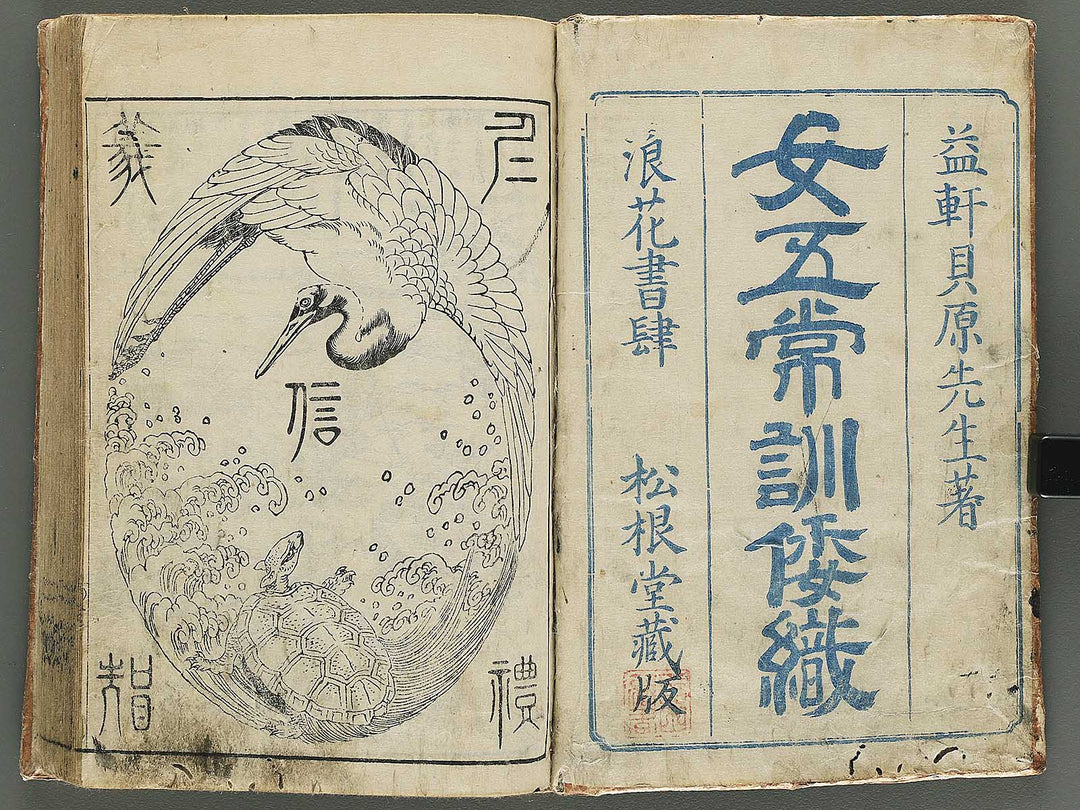 益軒貝原先生著
女五常訓倭織
浪花書肆 松根堂藏版
仁
義
信
禮
智